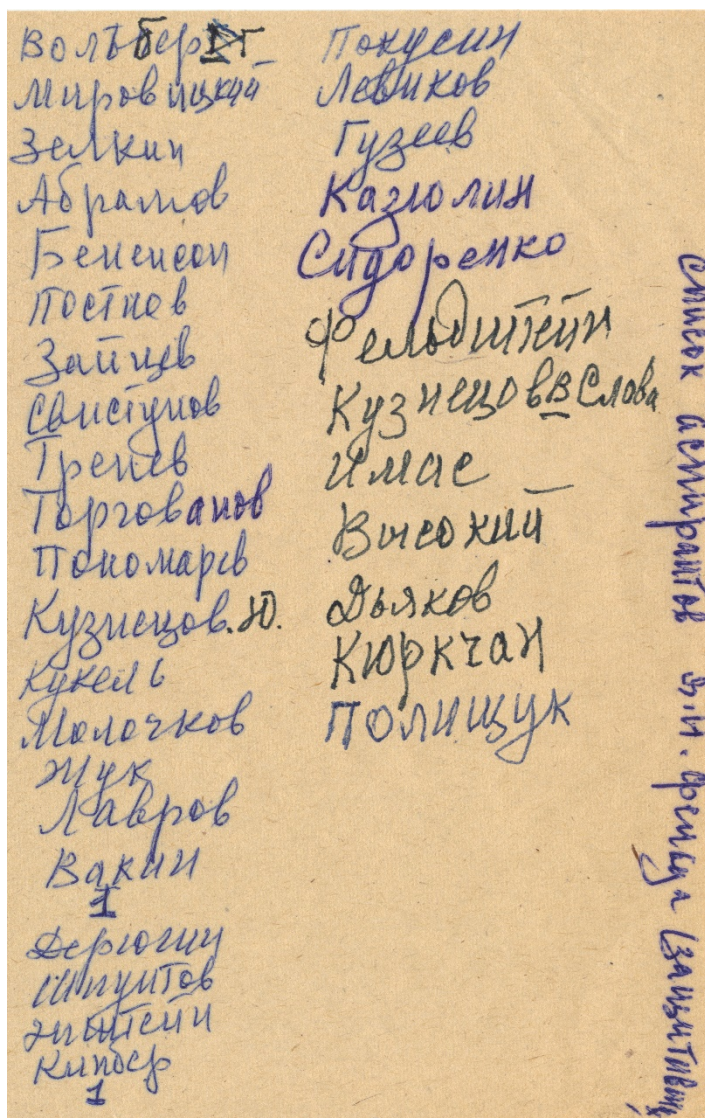 Вольберг
Мировицкий
Зелкин
Абрамов
Бененсон
Постнов
Зайцев
Свистунов
Тренев
Торгованов
Пономарев
Кузнецов.Ю.
Кукель
Молочков
Жук
Лавров
Вакин
1
Дерюгин
Шпунтов
Эпштейн
Кинбер
1
Покусин
Левиков
Гузеев
Казюлин
Сидоренко
Фельдштейн
Кузнецов В Слава
Имас
Высокий
Дьяков
Кюркчан
Полищук
Список аспирантов